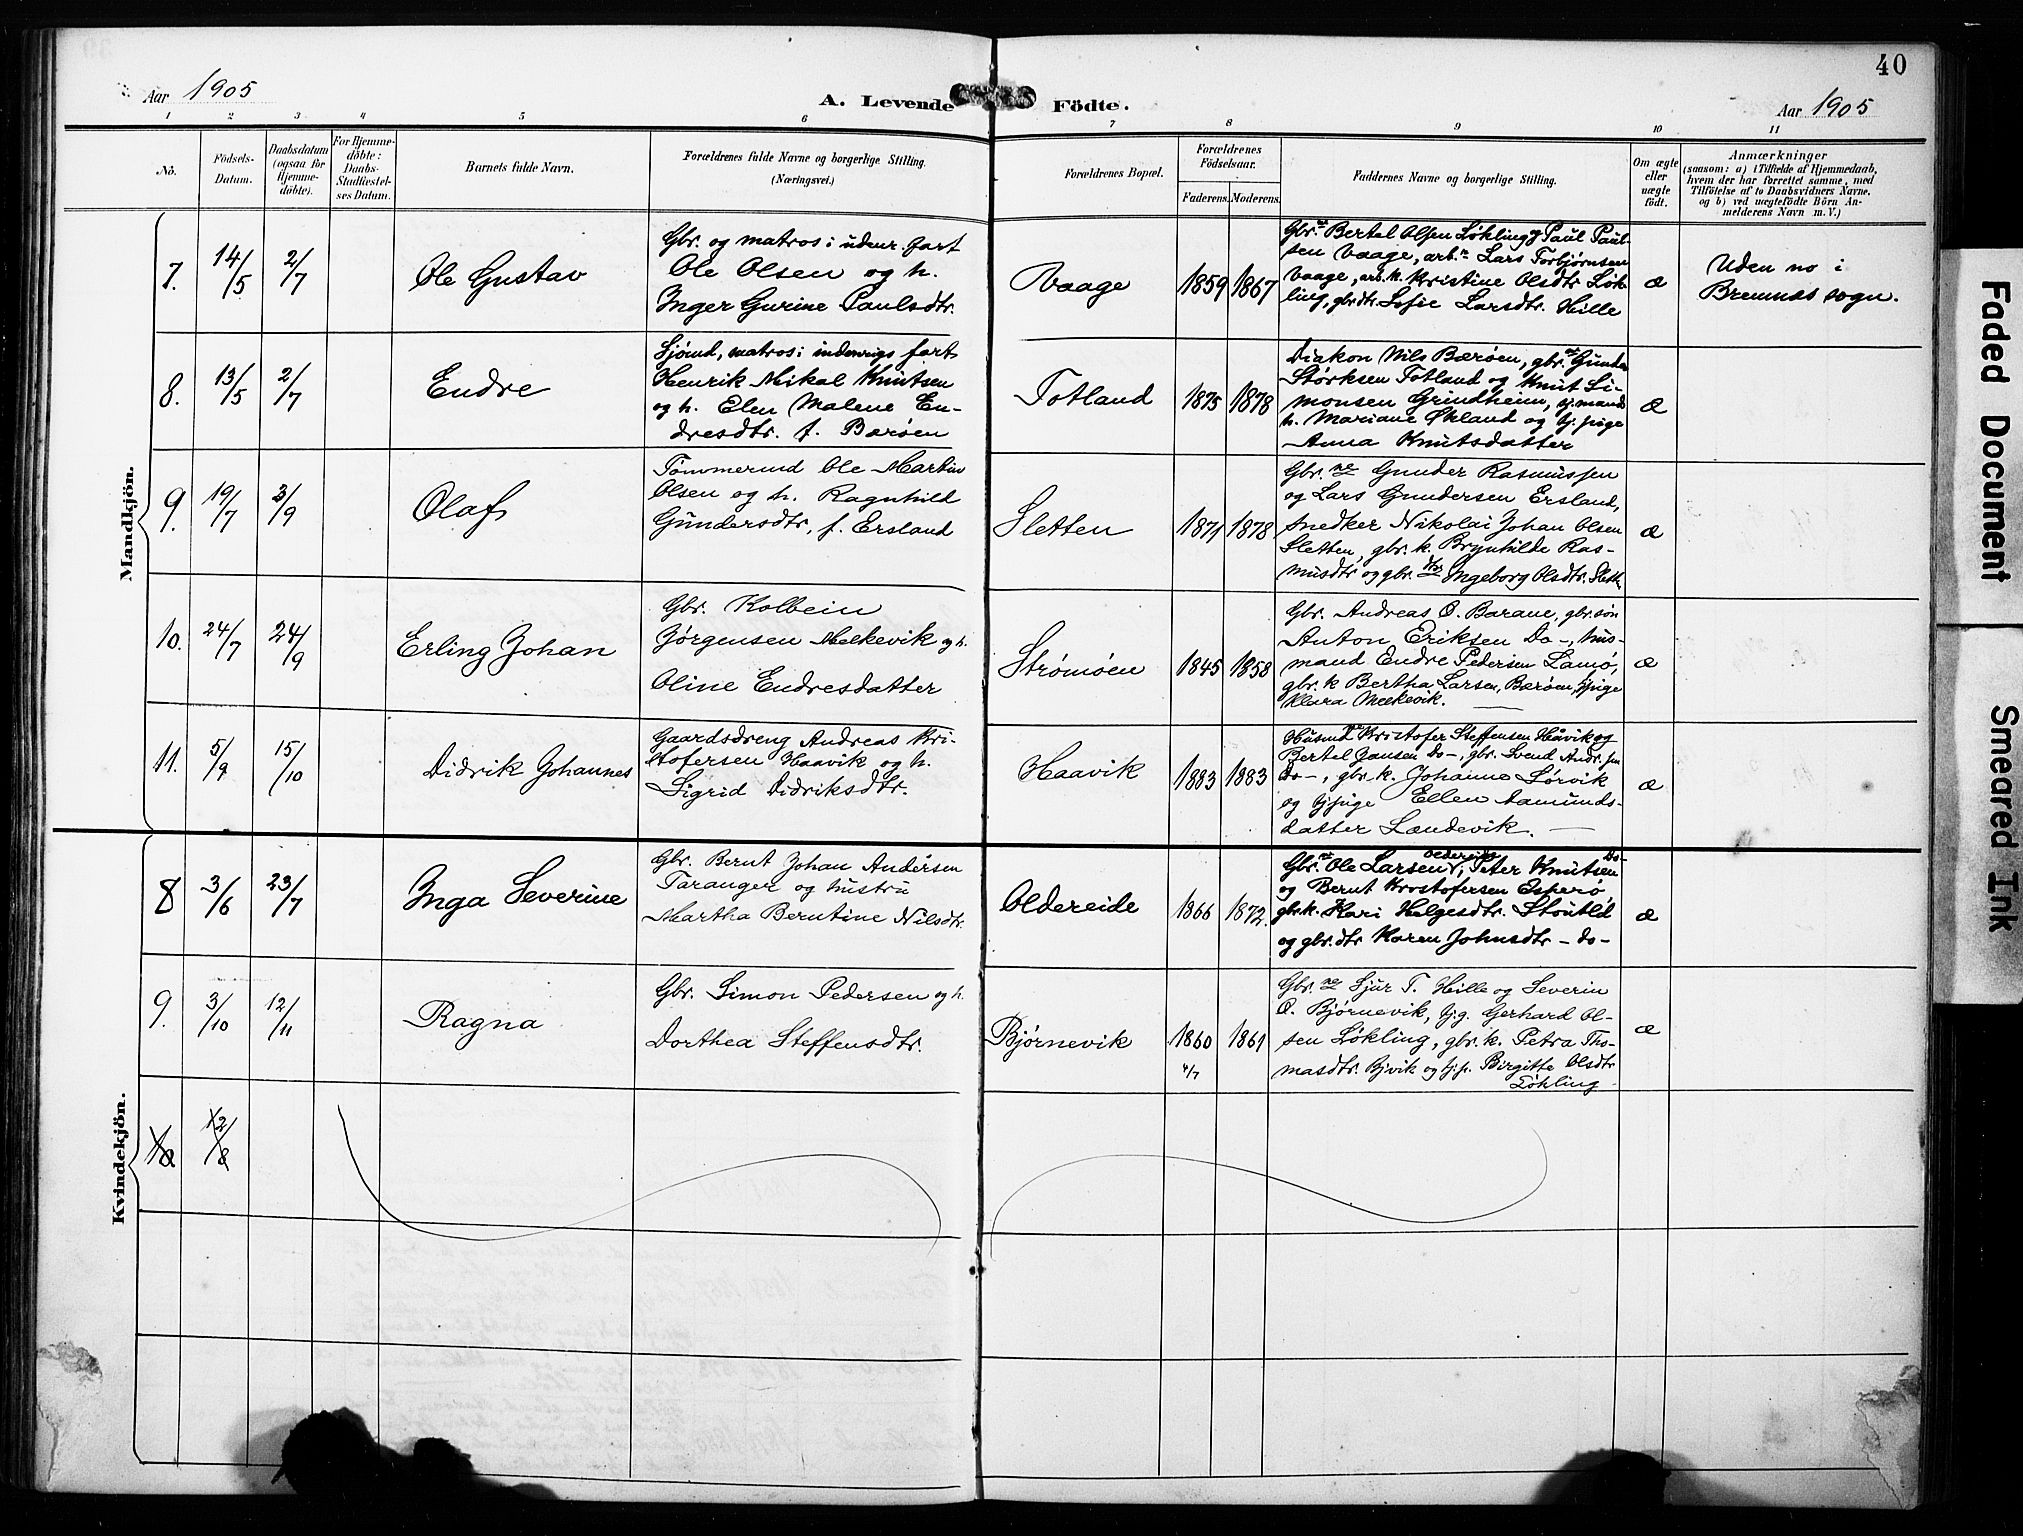 40
Aar 1905
A. Levende Födte.
Aar 1905
1 2 3 4 5 6 7 8 9 10 11
No.
Födsels-
Datum.
Daabsdatum
(ogsaa for
Hjemme-
döbte).
For Hjemme-
döbte:
Daabs-
Stadfæstel-
ses Datum.
Barnets fulde Navn.
Forældrenes fulde Navne og borgerlige Stilling.
(Næringsvei.)
Forældrenes Bopæl.
Forældrenes
Födselsaar.
Faderens. Moderens.
Faddernes Navne og borgerlige Stilling.
Om ægte
eller
uægte
födt.
Anmærkninger
(saasom: a) i Tilfælde af Hjemmedaab,
hvem der har forrettet samme, med
Tilföielse af to Daabsvidners Navne,
og b) ved uægtefödte Börn An-
melderens Navn m. V.)
Mandkjön.
7.
14/5
2/7
Ole Gustav
Gbr. og matros i udenr. fart
Ole Olsen og h.
Inger Gurine Paulsdtr.
Vaage
1859 1867
Gbr.ne Bertel Olsen Løkling, Paul Paul-
sen Vaage, arb.r Lars Torbjørnsen
Vaage, arb.k. Kristine Olsdtr Løk-
ling, gbr.dtr. Sofie Larsdtr. Hille
æ
Uden no i
Bremnes sogn.
8.
13/5
2/7
Endre
Sjømd, matros i indenrigs fart
Henrik Mikal Knutsen
og h. Elen Malene En-
dresdtr. f. Barøen
Totland
1875 1878
Diakon Nils Barøen, gbr.ne Gunder
Størksen Totland og Knut Si-
monsen Grindheim, sj.mands
h. Mariane Økland og tj.pige
Anna Knutsdatter
æ
9.
19/7
3/9
Olaf
Tømmermd Ole Martin
Olsen og h. Ragnhild
Gundersdtr, f. Ersland
Sletten
1871 1878
Gbr.ne Gunder Rasmussen
og Lars Gundersen Ersland,
snedker Nikolai Johan Olsen
Sletten, gbr. k. Brynhilde Ras-
musdtr og gbr. dtr Ingeborg Olsdtr. Slett.
æ
10.
24/7
24/9
Erling Johan
Gbr. Kolbein
Jørgensen Melkevik og h.
Oline Endresdatter
Strømøen
1845 1858
Gbr. Andreas O. Barane, gbr. søn
Anton Eriksen Do-, hus-
mand Endre Pedersen Lamø,
gbr. k Bertha Larsen, Barøen, tjpige
Klara Melkevik.
æ
11.
5/9
15/10
Didrik Johannes
Gaardsdreng Andreas Kri-
stofersen Haavik og h.
Sigrid Didriksdtr.
Haavik
1883 1883
Husmd Kristofer Steffensen Håvik og
Bertel Jansen Do-, gbr. Svend Andr.sen
Do-, gbr. k. Johanne Sørvik
og tjpige Ellen Samunds-
datter Landevik.
æ
Kvindekjön.
8
3/6
23/7
Inga Severine
Gbr. Bernt Johan Andersen
Taranger og hustru
Martha Berntine Nilsdtr.
Oldereide
1866 1872.
Gbr.ne Ole Larsen Oldereide, Peter Knutsen Do-
og Bernt Kristofersen Esperø
gbr.k. Kari Helgesdtr. Stoutld
og gbr.dtr Karen Johnsdtr - do -
æ
9.
3/10
12/11
Ragna
Gbr. Simon Pedersen og h.
Dorthea Steffensdtr.
Bjørnevik
1860 1861
4/7
Gbr.ne Sjur T. Hille og Severin
O. Bjørnevik, tj.g. Gerhard Ol-
sen Løkling, gbr. k. Petra Tho-
masdtr. Bjvik og tj.p. Birgitte Olsdtr
Løkling
æ
10
12/8
Faded Document
Smeared Ink